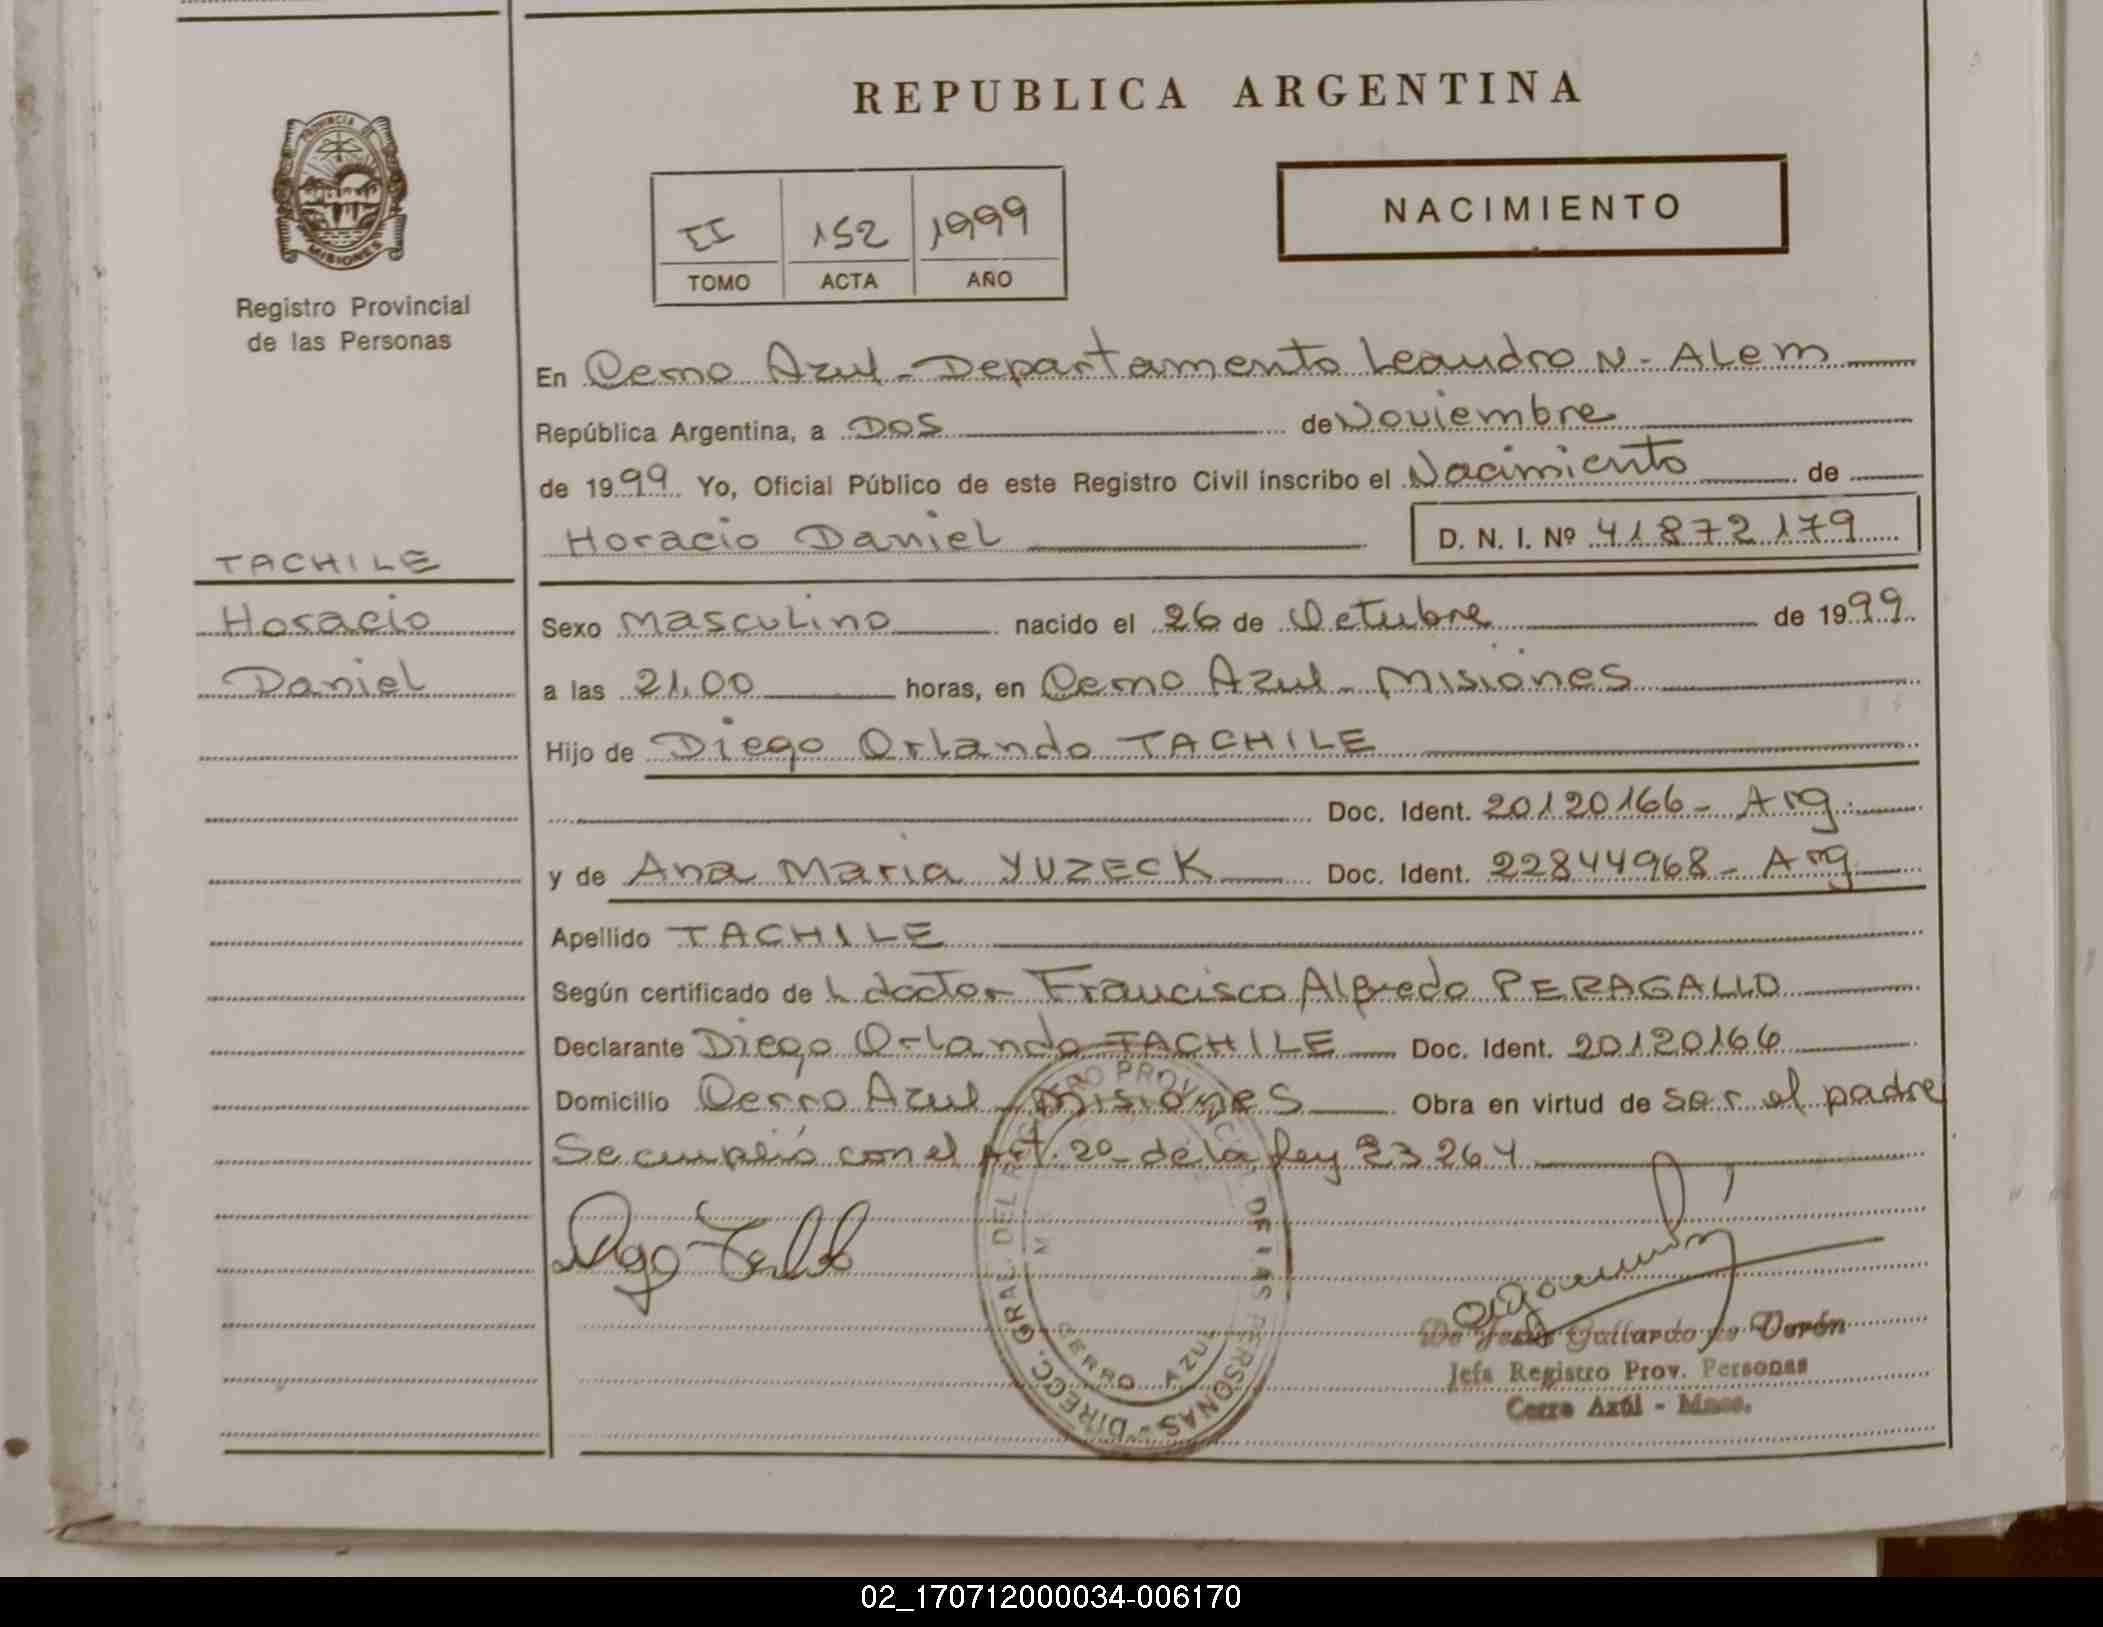 REPUBLICA ARGENTINA
PROVINCIA DE MISIONES
Registro Provincial
de las Personas
II 152 1999
TOMO ACTA AÑO
NACIMIENTO
En Cerro Azul - Departamento Leandro N - Alem
República Argentina, a Dos de Noviembre
de 1999 Yo, Oficial Público de este Registro Civil inscribo el Nacimiento de
Horacio Daniel D. N. I. Nº 41872179
TACHILE
Horacio
Daniel
Sexo masculino nacido el 26 de Octubre de 1999.
a las 21,00 horas, en Cerro Azul - Misiones
Hijo de Diego Orlando TACHILE
Doc. Ident. 20120166 - Arg.
y de Ana Maria YUZECK Doc. Ident. 22844968 - Arg
Apellido TACHILE
Según certificado de l doctor Francisco Alfredo PERAGALLO
Declarante Diego Orlando TACHILE Doc. Ident. 20120166
Domicilio Cerro Azul - Misiones Obra en virtud de ser el padre
Se cumplió con el Art. 20 - de la Ley 23264
DIRECC. GRAL. DEL REGISTRO PROVINCIAL DE LAS PERSONAS
CERRO AZUL
Gallardo de Verón
Jefa Registro Prov. Personas
Cerro Azúl - Mnes.
02_170712000034-006170